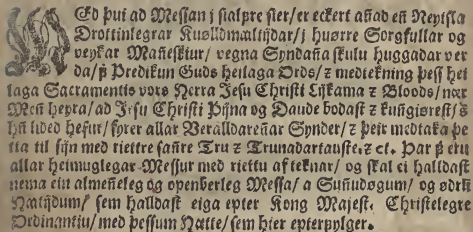 MEd þui ad Messan j sialpre sier/ er eckert añad en Neytsla
Drottinlegrar Kuølldmaltijdar/ j huørre Sorgfullar og
veykar Mañeskiur/ vegna Syndaña skulu huggadar ver
da/ þ Predikun Guds heilaga Ords/ z medtekning þess hei
laga Sacramentis vors Herra Jesu Christi Lijkama z Bloods/ nær
Meñ heyra/ ad Jesu Christi Pijna og Daude bodast z kuñgiørest/ ā
hñ lided hefur/ fyrer allar Veralldareñar Synder/ z þeir medtaka þe
tta til sijn med riettre sañre Tru z Trunadartauste. z cl. Par þ eru
allar heimuglegar Messur med riettu af teknar/ og skal ei halldast
nema ein almeñeleg og openberleg Messa/ a Suñudøgum/ og ødrū
Hatijdum/ sem halldast eiga epter Kong Majest. Christelegre
Ordinantiu/ med þessum Hætte/ sem hier epterpylger.